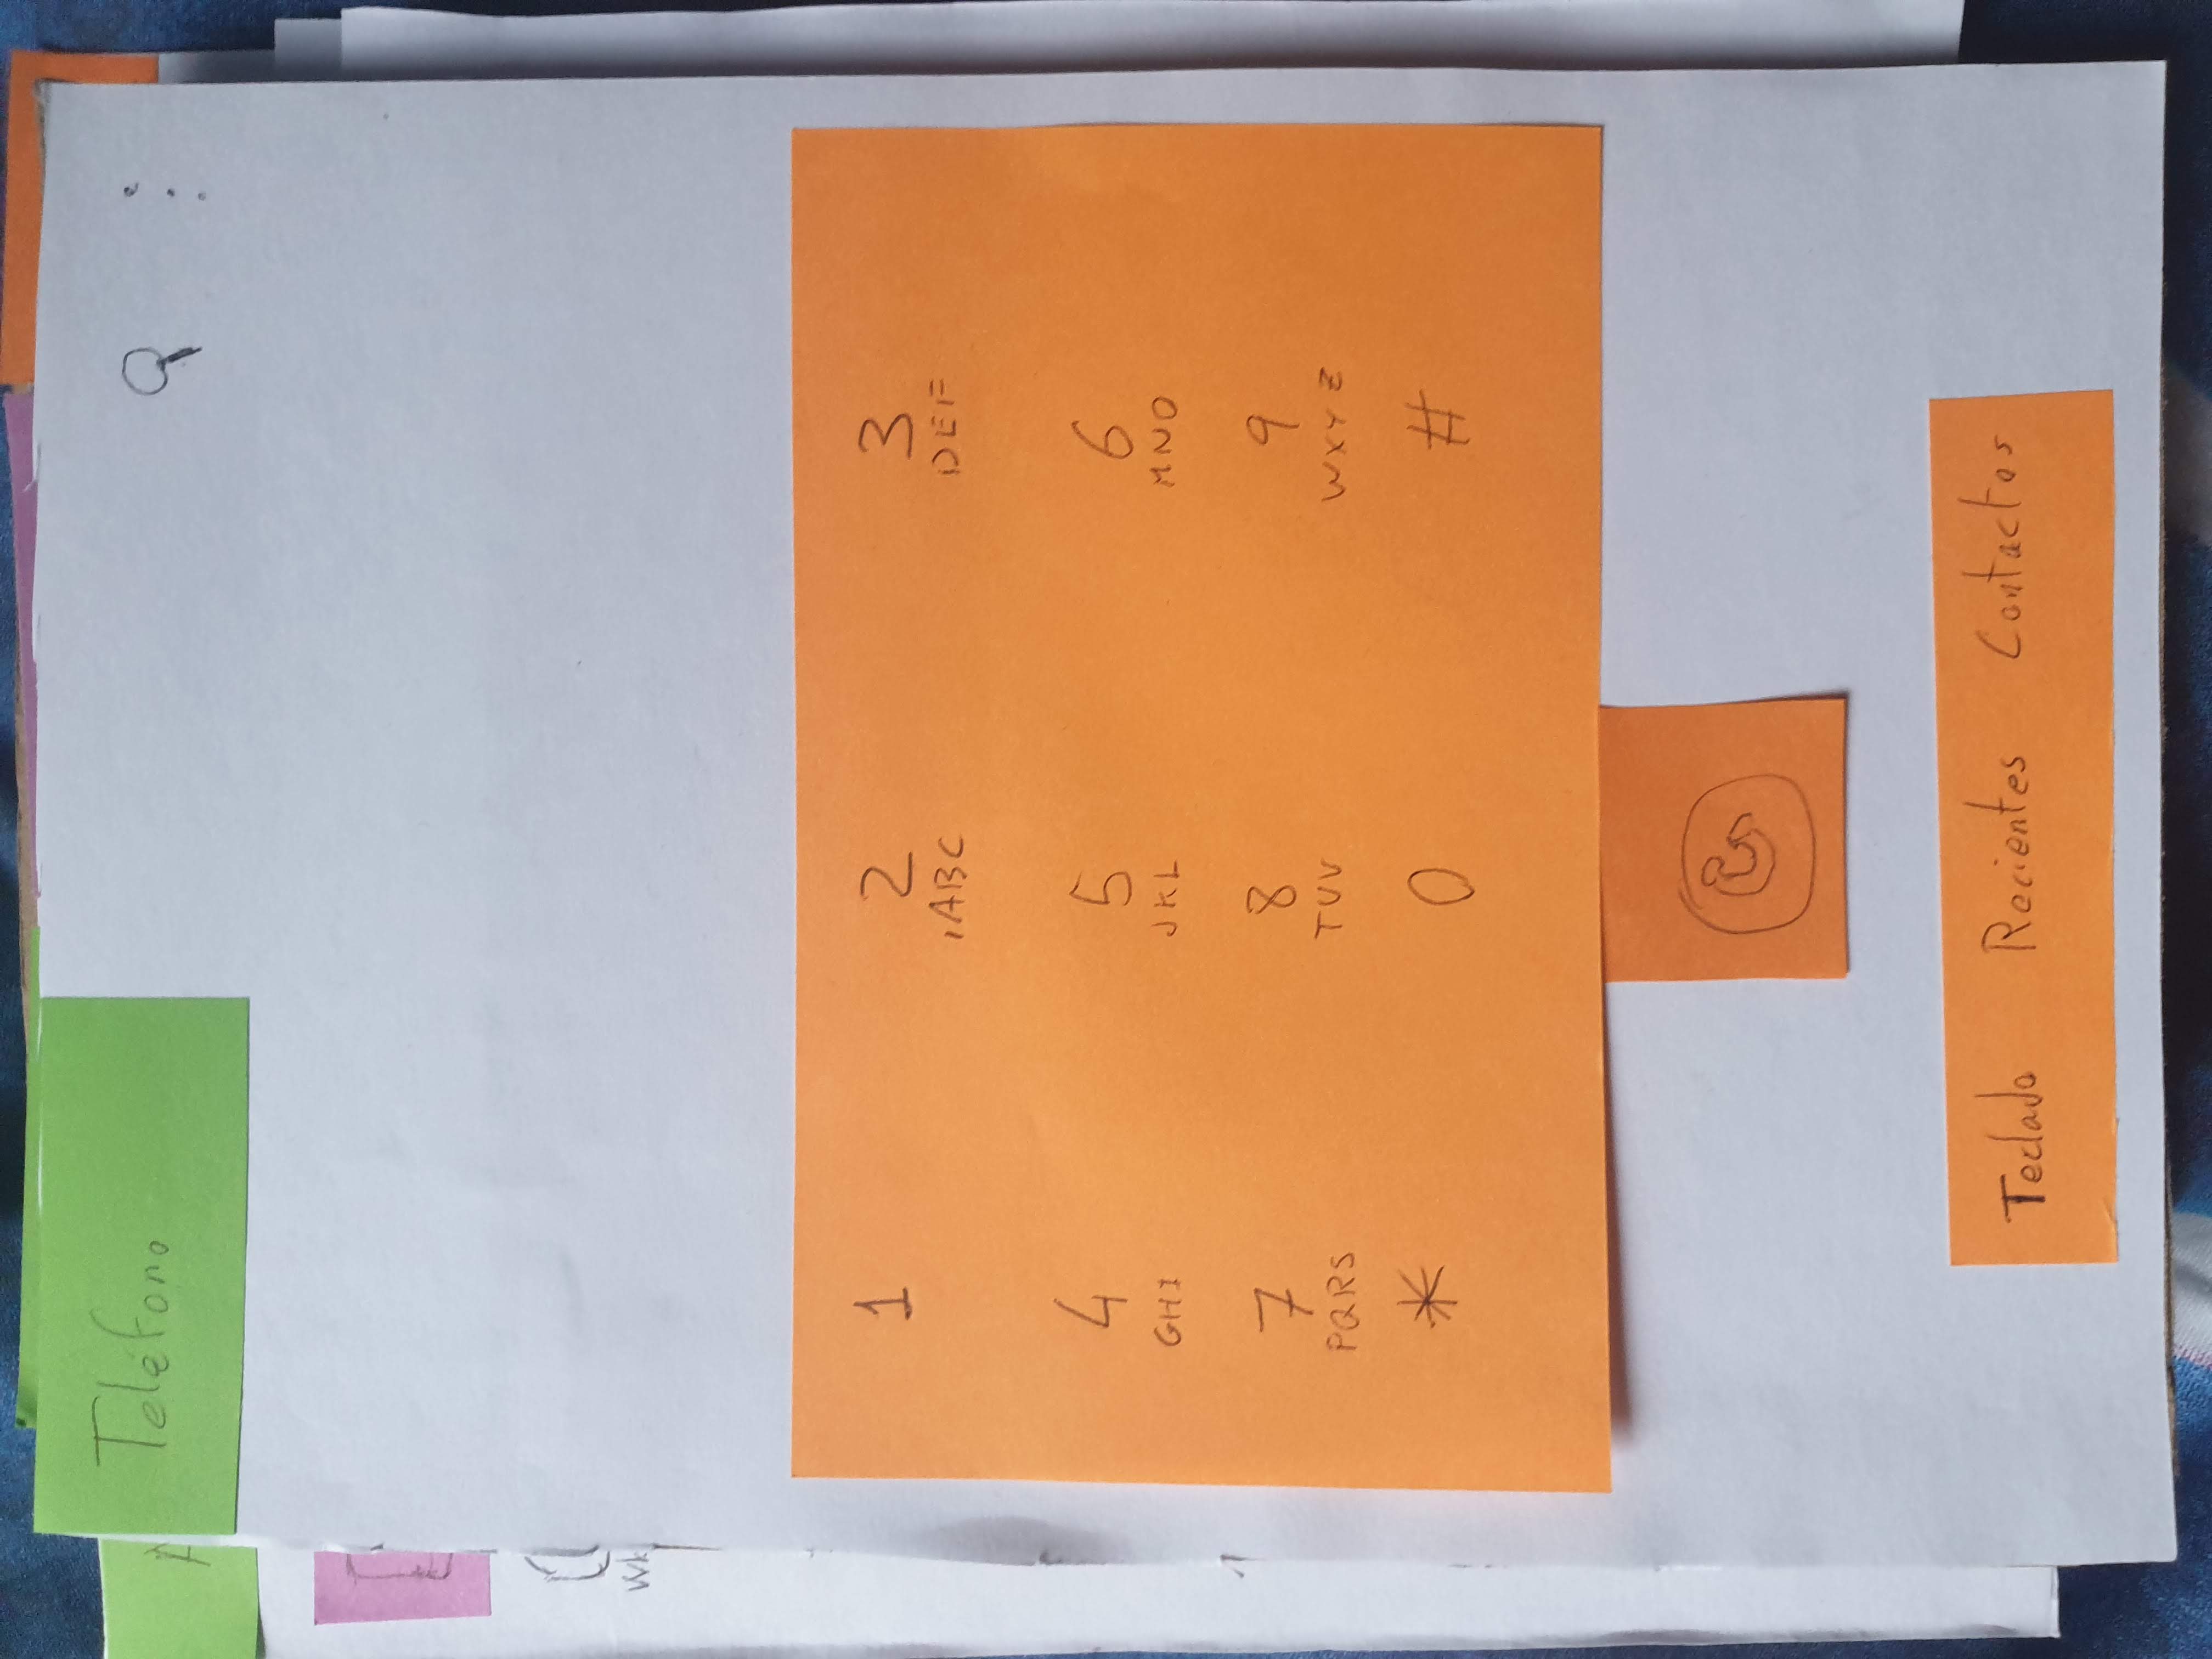 Teléfono
1 2 3
ABC DEF
4 5 6
GHI JKL MNO
7 8 9
PQRS TUV WXYZ
* 0 #
Teclado Recientes Contactos